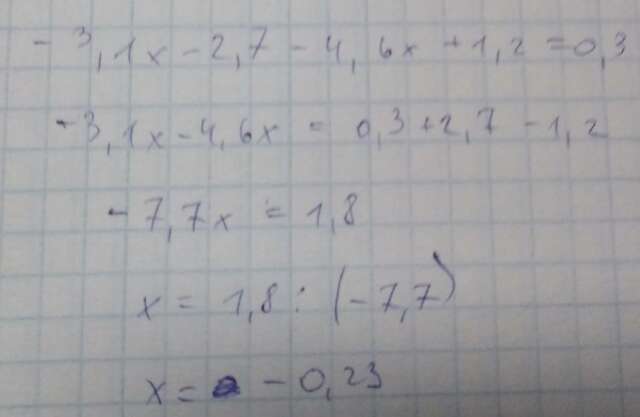 - 3,1x - 2,7 - 4,6x + 1,2 = 0,3
- 3,1x - 4,6x = 0,3 + 2,7 - 1,2
- 7,7x = 1,8
x = 1,8 : (-7,7)
x = - 0,23